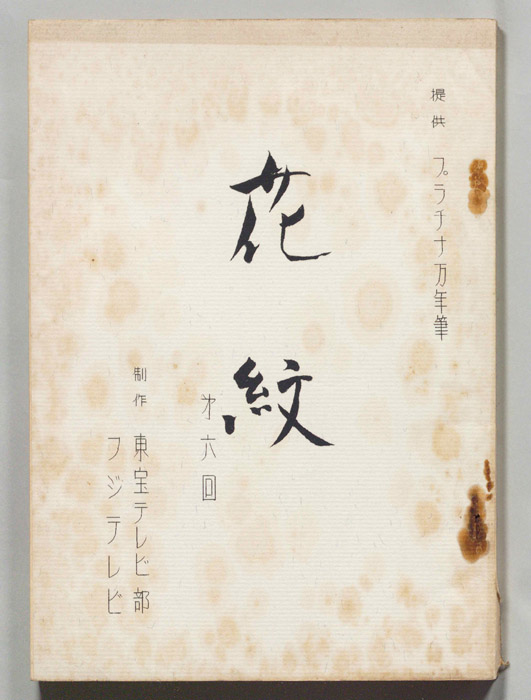 提供 プラチナ万年筆
花紋
㐧六回
制作 東宝テレビ部
フジテレビ